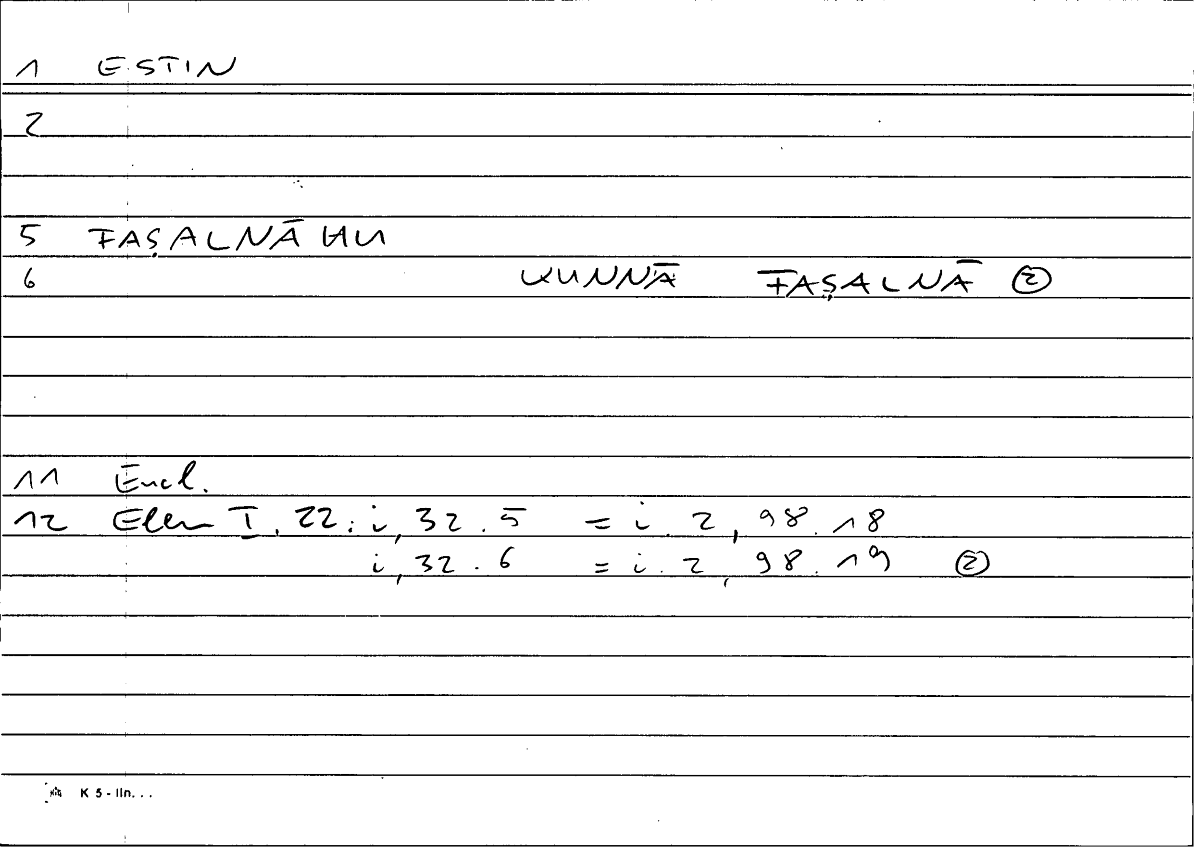 1 ESTIN
2
5 FAṢALNĀHU
6 KUNNĀ FAṢALNĀ ②
11 Eucl.
12 Elem I, 22: i, 32.5 = i. 2, 98.18
i, 32.6 = i. 2, 98.19 ②
K 5 - lin...